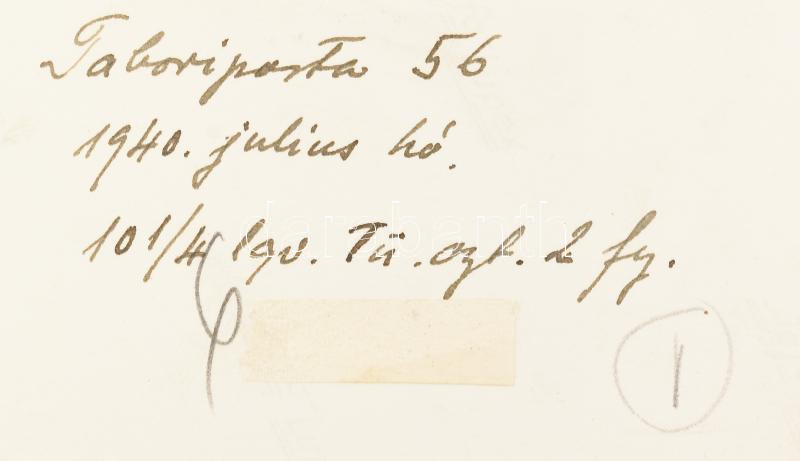 Taboriposta 56
1940. julius hó.
101/4 lgv. Tü. ozt. 2 fg.
darabanth
1